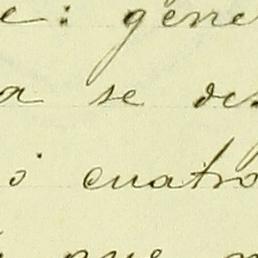 e: gene
a se des
ó cuatro
que